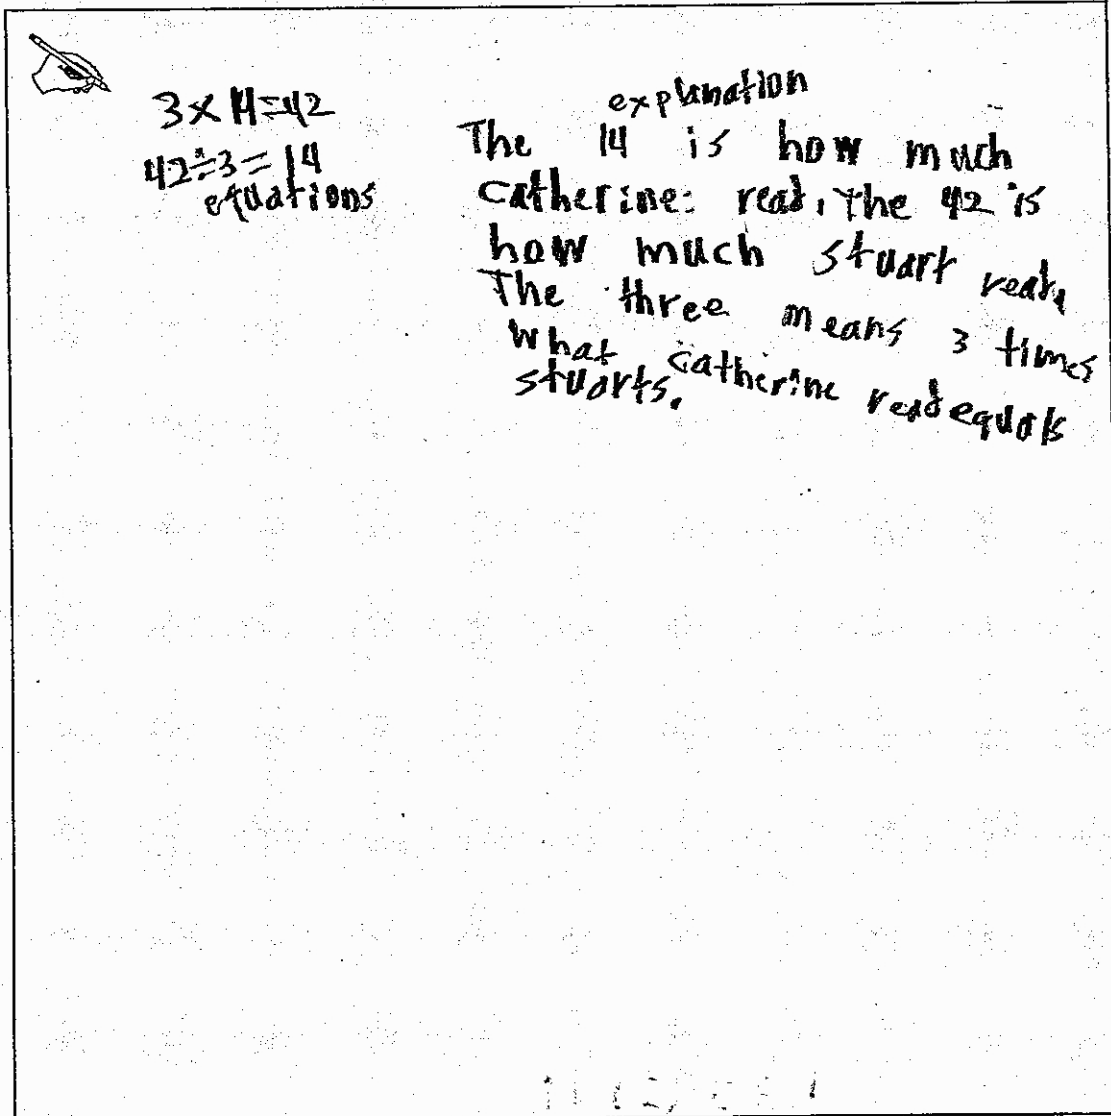 3 × 14 = 42
42 ÷ 3 = 14
equations
explanation
The 14 is how much
catherine: read, the 42 is
how much stuart read,
The three means 3 times
what catherine read equals
stuarts.